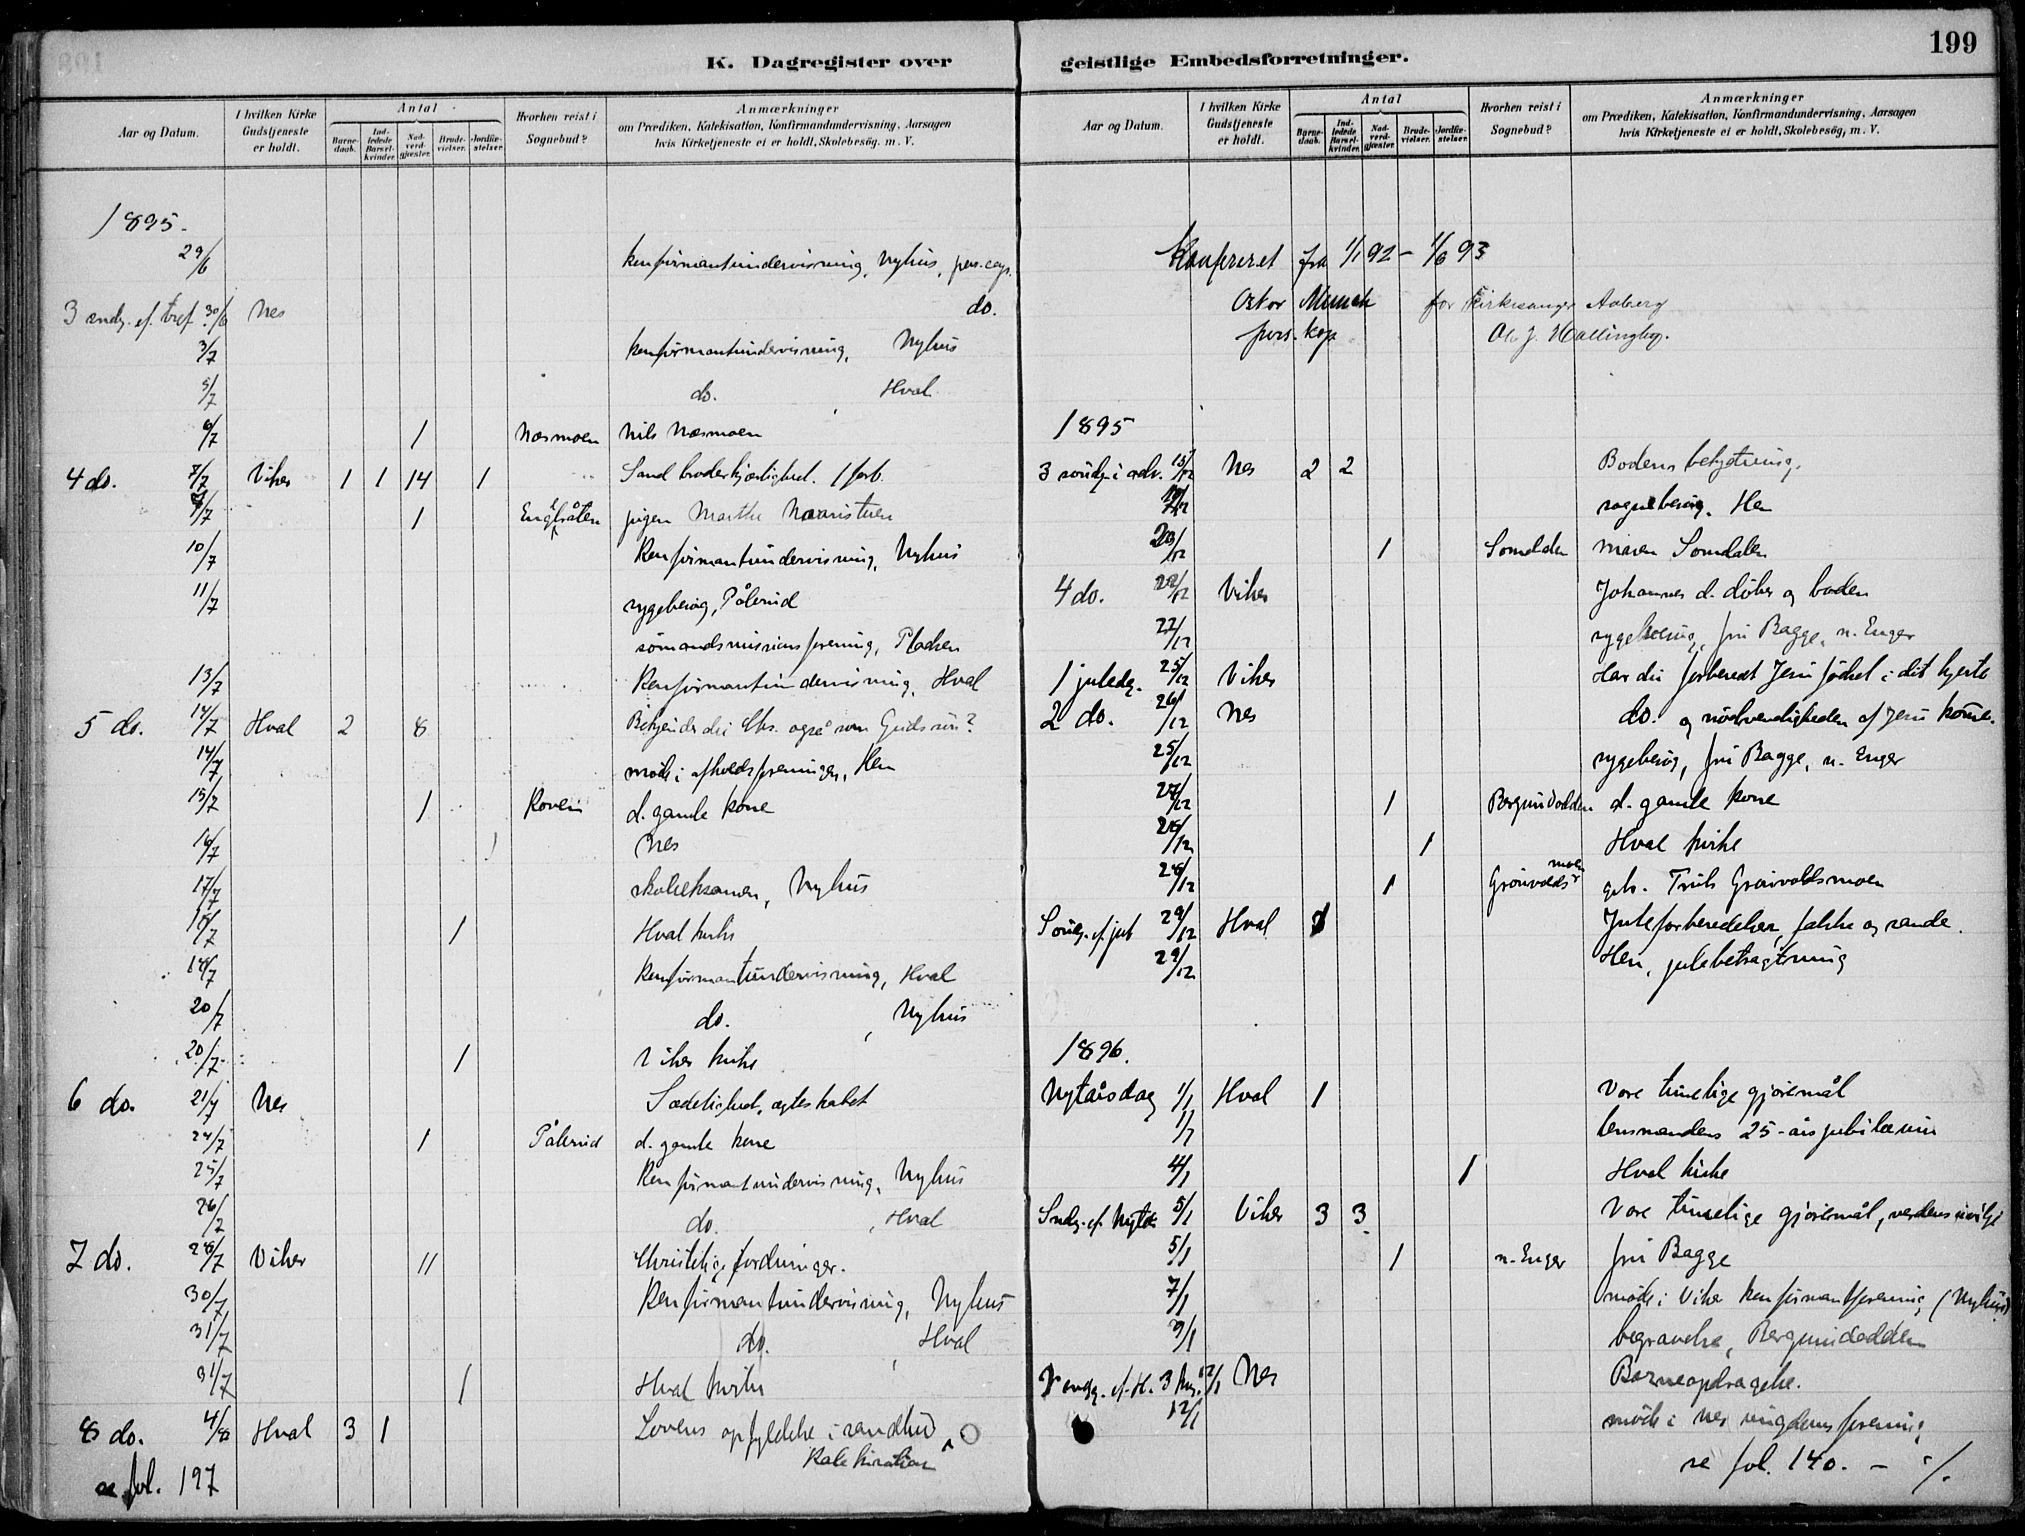 199
K. Dagregister over
Aar og Datum.
I hvilken Kirke Gudstjeneste er holdt.
Antal
Barne-daab.
Ind-ledede Barsel-kvinder.
Nad-verd-gjæster.
Brude-vielser.
Jordfæ-stelser.
Hvorhen reist i Sognebud?
Anmærkninger
om Prædiken, Katekisation, Konfirmandundervisning, Aarsagen
hvis Kirketjeneste ei er holdt, Skolebesøg. m. V.
1895.
29/6 konfirmantundervisning, Nyhus, pers. cap.
3 sndg. ef. tref. 30/6 Nes do.
3/7 konfirmantundervisning, Nyhus
5/7 do. Hval
6/7 1 Næsmoen Nils Næsmoen
4 do. 7/7 Viker 1 1 14 1 Sand broderkjærlighed. 1 forb.
7/7 1 pigen Marthe
10/7 Konfirmantundervisning, Nyhus
11/7 sygebesøg, Pålerud
sømandsmissionsforening,
13/7 Konfirmantundervisning, Hval
5 do. 14/7 Hval 2 8 Bekjender du Chr. også som Guds søn?
14/7 møde i afholdsforeningen, Hen
15/7 1 d. gamle kone
16/7 1 Nes
17/7 skoleeksamen, Nyhus
18/7 1 Hval kirke
18/7 Konfirmantundervisning, Hval
20/7 do. , Nyhus
20/7 1 Viker kirke
6 do. 21/7 Nes Sædelighed, ægteskabet
24/7 1 Pålerud d. gamle kone
25/7 Konfirmantundervisning, Nyhus
26/7 do. , Hval
7 do. 28/7 Viker 11 Christelige fordringer.
30/7 Konfirmantundervisning, Nyhus
31/7 do. , Hval
31/7 1 Hval kirke
8 do. 4/8 Hval 3 1 Lovens opfyldelse i sandhed
Katekisation
se fol. 197
geistlige Embedsforretninger.
Aar og Datum.
I hvilken Kirke Gudstjeneste er holdt.
Antal
Barne-daab.
Ind-ledede Barsel-kvinder.
Nad-verd-gjæster.
Brude-vielser.
Jordfæ-stelser.
Hvorhen reist i Sognebud?
Anmærkninger
om Prædiken, Katekisation, Konfirmandundervisning, Aarsagen
hvis Kirketjeneste ei er holdt, Skolebesøg, m. V.
Konfereret fra 1/1 92 - 1/6 93
Oskar Munch for Kirkesanger Aaberg
pers. kap. Ol. J. Hallingby.
1895
3 søndg. i adv. 15/12 Nes 2 2 Bodens betydning.
sognebesøg. Hen
20/12 1 Somdalen Maren Somdalen
4 do. 22/12 Viker Johannes d. døber og boden
22/12 sygebesøg, fru Bagge, n. Enger
1 juledg. 25/12 Viker Har du forberedt Jesu fødsel i dit hjerte
2 do. 26/12 Nes do. og nødvendigheden af Jesu komme.
25/12 sygebesøg, fru Bagge, n. Enger
27/12 1 Bergsundodden d. gamle kone
28/12 1 Hval kirke
28/12 1 Grønvoldsmoen gbr. Truls Grønvoldsmoen
Søndg. ef. jul 29/12 Hval 1 Juleforberedelser, falske og sande.
29/12 Hen, julebetragtning
1896.
Nytårsdag 1/1 Hval 1 Vore timelige gjøremål
1/1 lensmandens 25-års jubilæum
4/1 1 Hval kirke
Sndg. ef. Nytår 5/1 Viker 3 3 Vore timelige gjøremål, verdens uvilje
5/1 1 n. Enger fru Bagge
7/1 møde i Viker konfirmantforening (Nyhus)
9/1 begravelse, Bergsundodden
1 søndg. ef. H. 3 kg. 12/1 Nes Barneopdragelse.
12/1 møde i Nes ungdomsforening
se fol. 140. - ./.